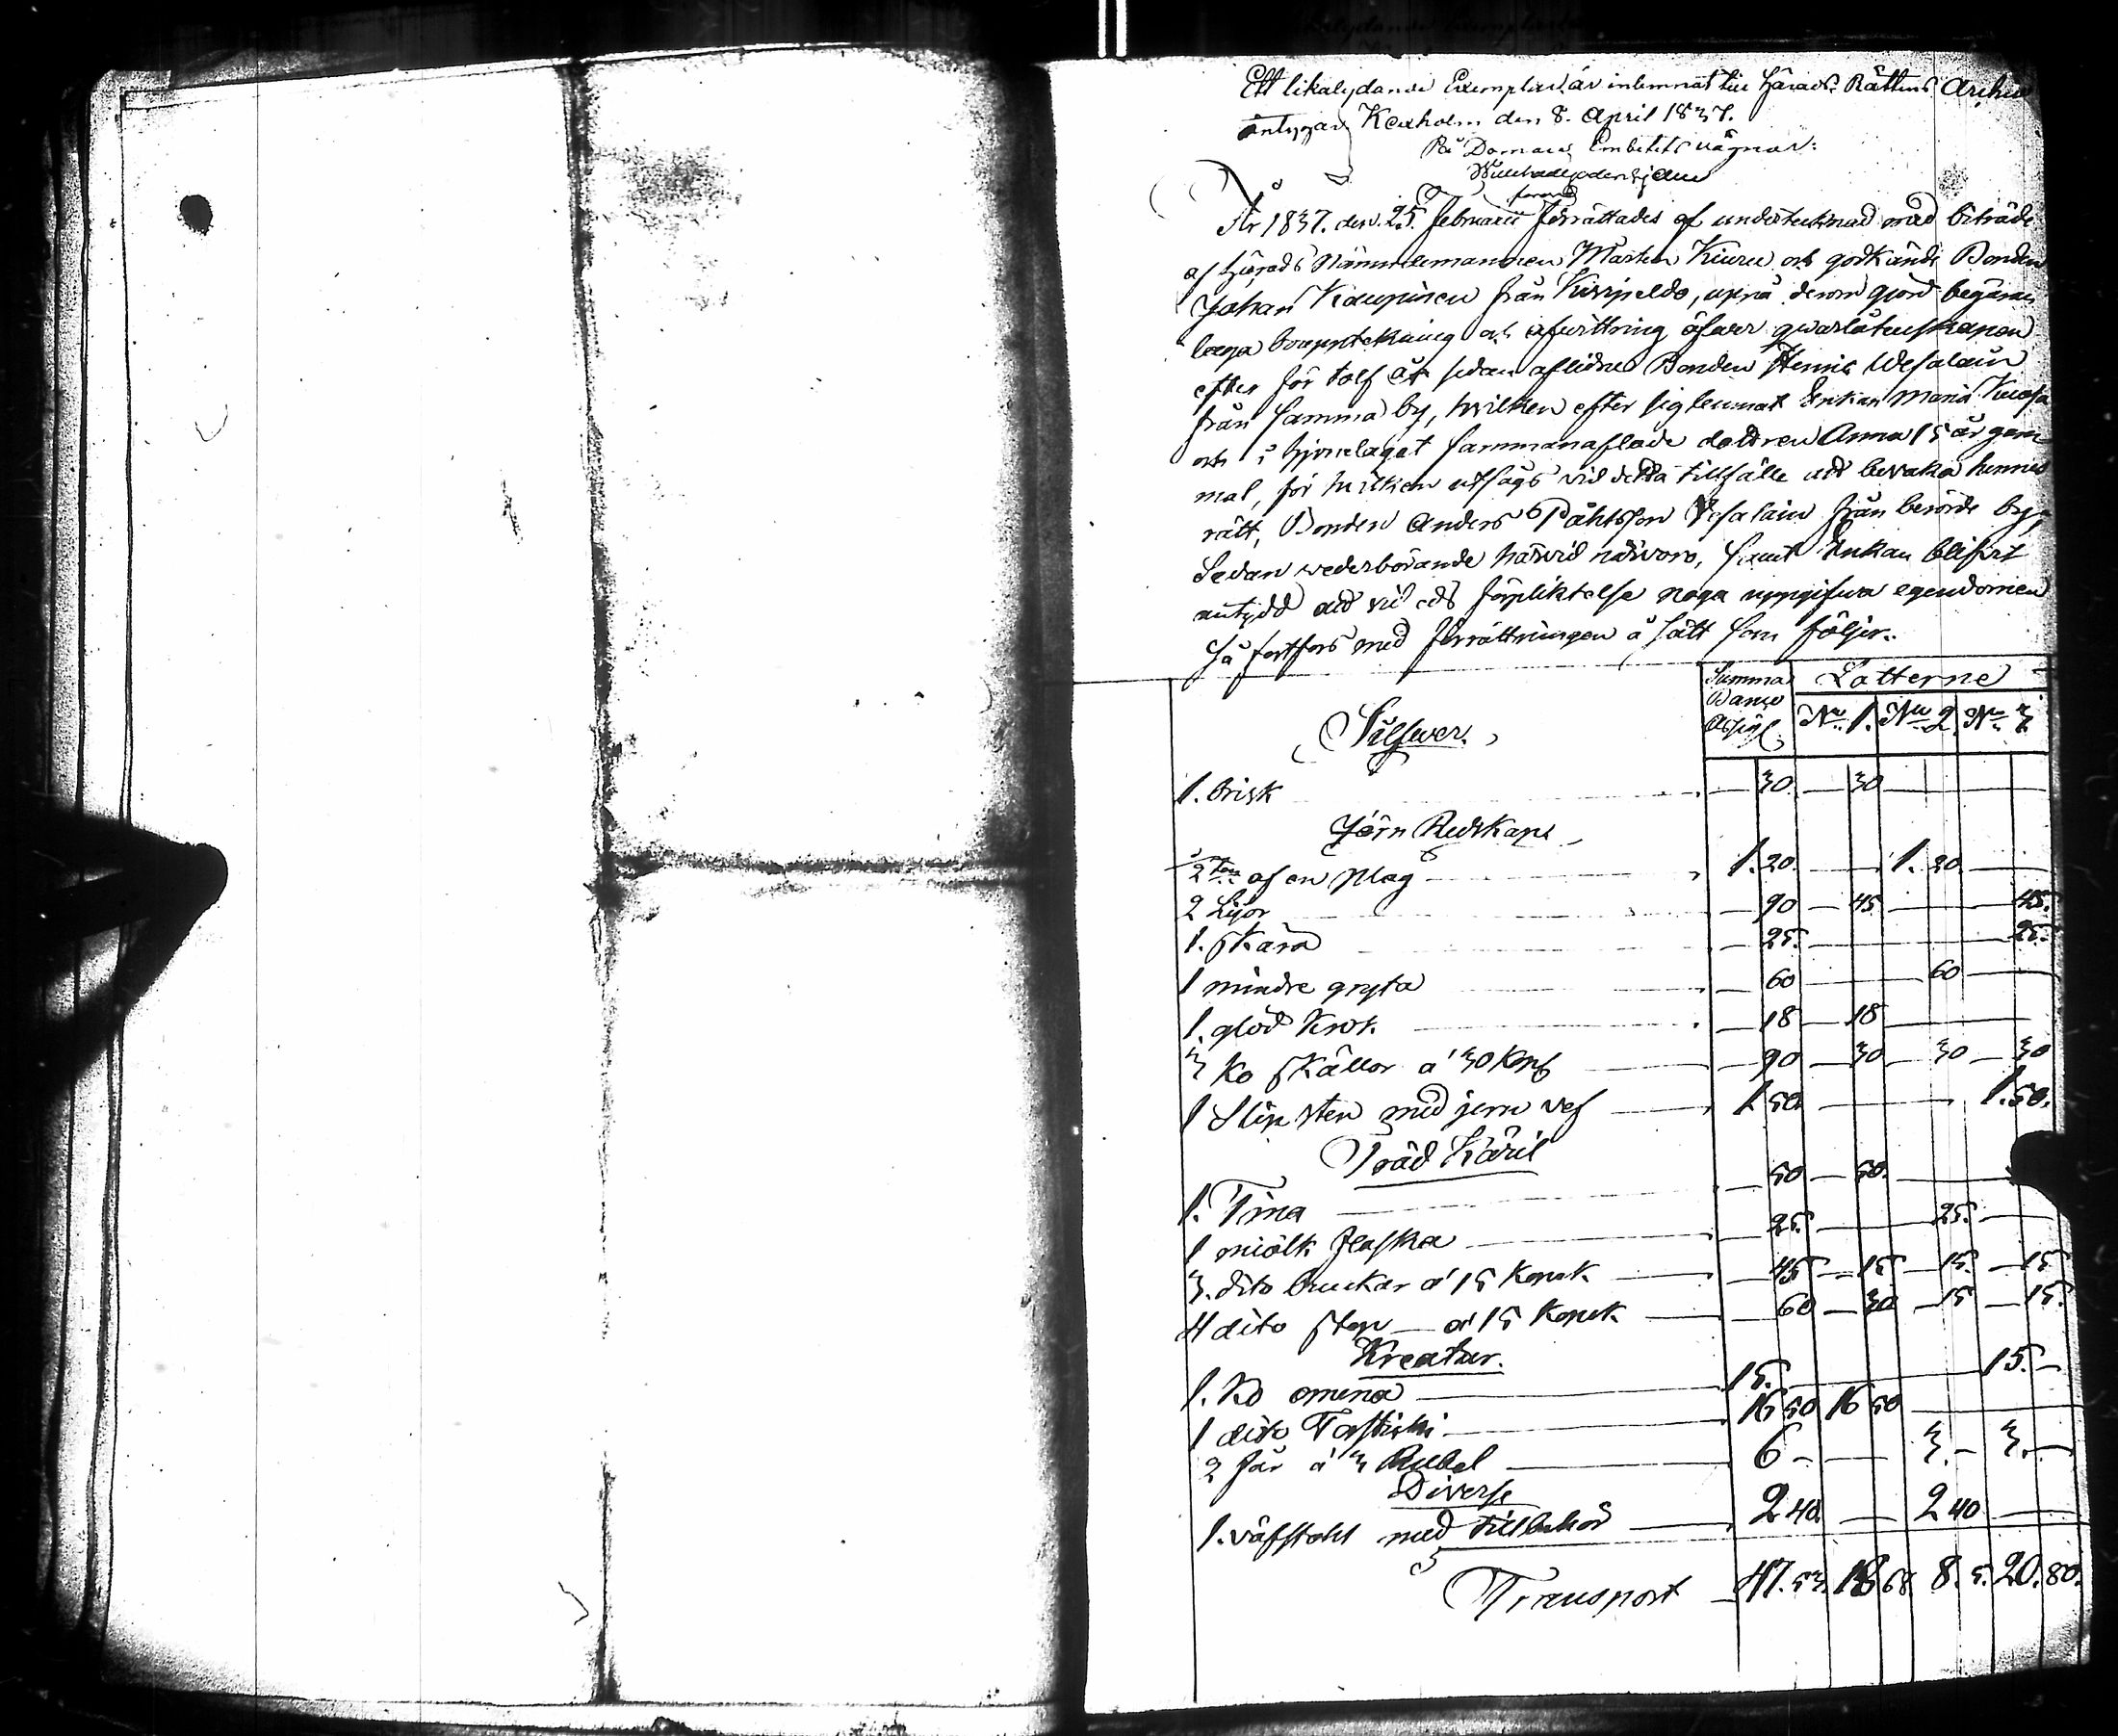 Ett likalydande Exemplar är inlemnat till Härads Rättens Archiv
intygar Kexholm den 8. April 1837.
På Domare Embetets vägnar:
År 1837. den 25. Februarii förrättades af undertecknad med biträde
af Härads Nämndemannen Mårten Kiuru och godkände Bonden
Johan Kauppinen från Kiwipeldo, uppå derom gjord begäran
laga bouppteckning och afwittring öfwer qwarlåtenskapen
efter för tolf år sedan aflidne Bonden Henric Wesalain
från samma by, hvilken efter sig lemnat Enkan Maria
och i hjonelaget sammanaflade dottren Anna 15 år gam-
mal, för hvilken utsågs vid detta tillfälle att bevaka hennes
rätt, Bonden Anders Påhlsson Vesalain från berörde by;
Sedan wederbörande härvid närvoro, samt Enkan blifwit
antydd att vid eds förpliktelse noga uppgifwa egendomen
så fortfors med förrättningen å sätt som följer.
Summa Banco Assign. Lotterne
No 1. No 2. No 3
Silfwer.
1. brisk — 30. — 30
Jern Redskap
2 af en plog 1. 20. — 1. 20
2 Lijor — 90 — 45 — 45.
1. skära — 25. — 25.
1 mindre gryta — 60 — 60
1. glöd krok — 18 — 18
3 Ko skällor a' 30 Kop — 90 — 30 — 30 — 30
1 Slip sten med jern vef 1. 50. — 1. 50.
Träd Käril
1. Tina — 50 — 50.
1 miölk flaska — 25. — 25.
3. dito bunkar a' 15 Kopek — 45 — 15 — 15. — 15
4 dito stop — a' 15 Kopek — 60 — 30 — 15 — 15.
Kreatur.
1. Ko omena 15. — 15. —
1 dito Tastikki 16 50 16 50
2 får a' 3 Rubel 6 — 3. — 3. —
Diverse
1. väfstohl med tillbehör 2 40. — 2 40
Transport 47. 53. 18 68. 8. 5. 20. 80.